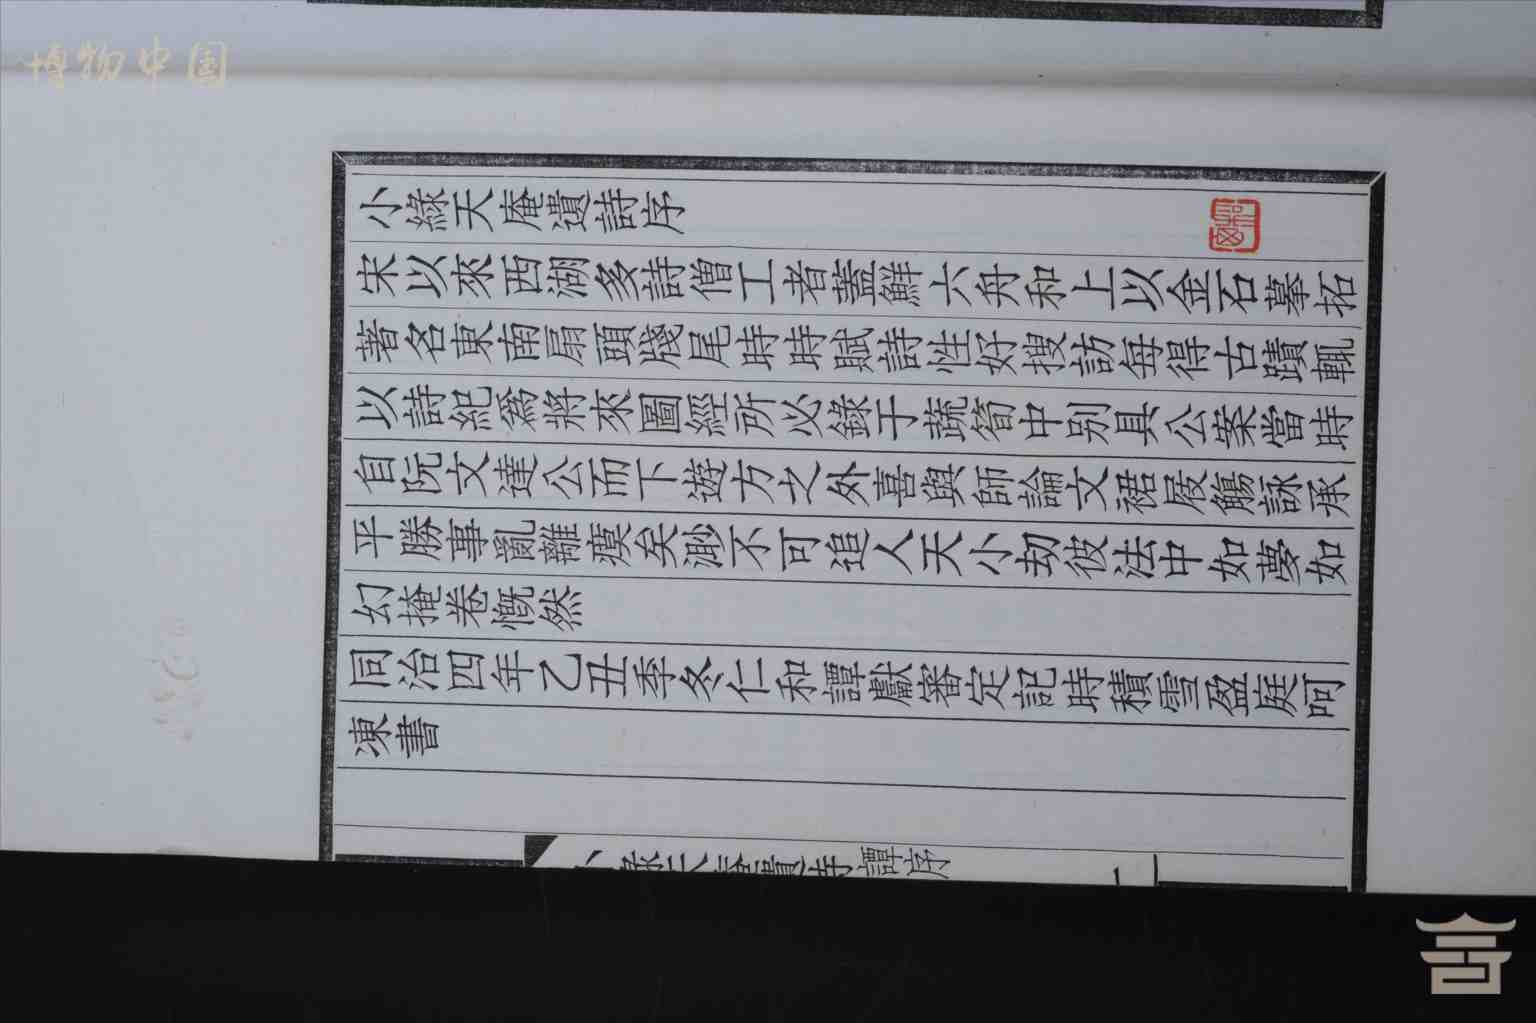 小綠天庵遺詩序
宋以來西湖多詩僧工者蓋鮮六舟和上以金石摹拓
著名東南扇頭牋尾時時賦詩性好搜訪每得古蹟輒
以詩紀爲將來圖經所必錄于蔬筍中别具公案當時
自阮文達公而下遊方之外喜與師論文裙屐觴詠承
平勝事亂離瘼矣渺不可追人天小劫彼法中如夢如
幻掩卷慨然
同治四年乙丑季冬仁和譚獻審定記時積雪盈庭呵
凍書
小綠天庵遺詩譚序
一
博物中国